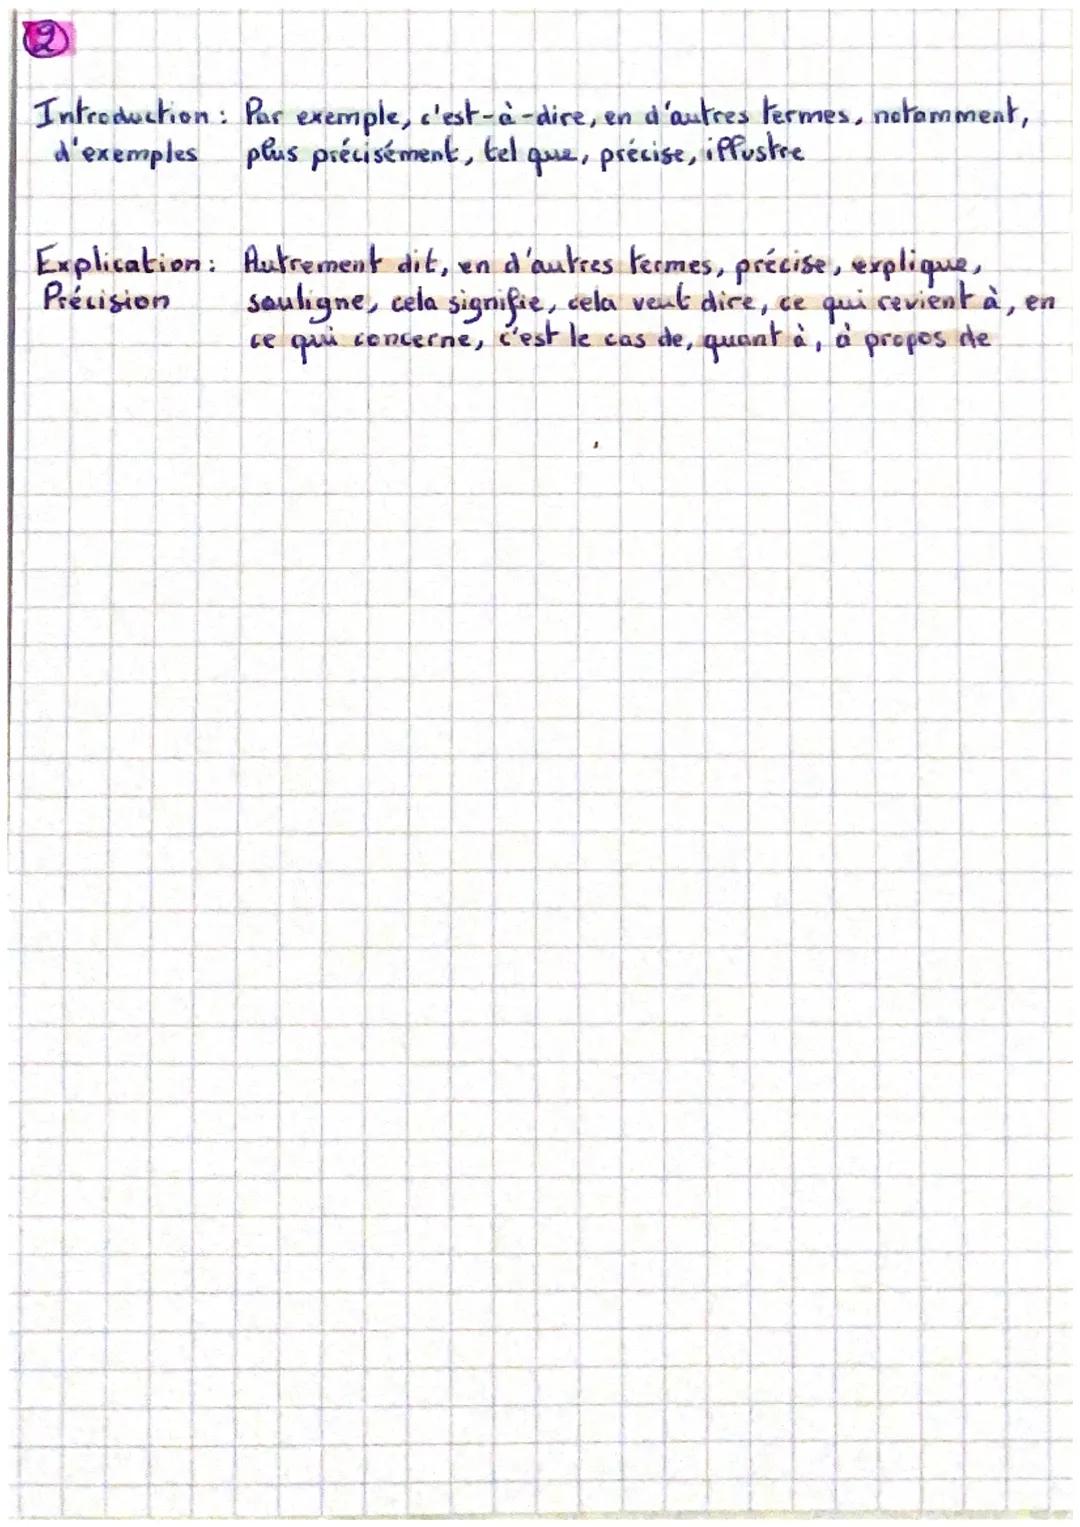 2
Introduction : Par exemple, c'est-à-dire, en d'autres termes, notamment,
d'exemples plus précisément, tel que, précise, illustre
Explication : Autrement dit, en d'autres termes, précise, explique,
Précision souligne, cela signifie, cela veut dire, ce qui revient à, en
ce qui concerne, c'est le cas de, quant à, à propos de